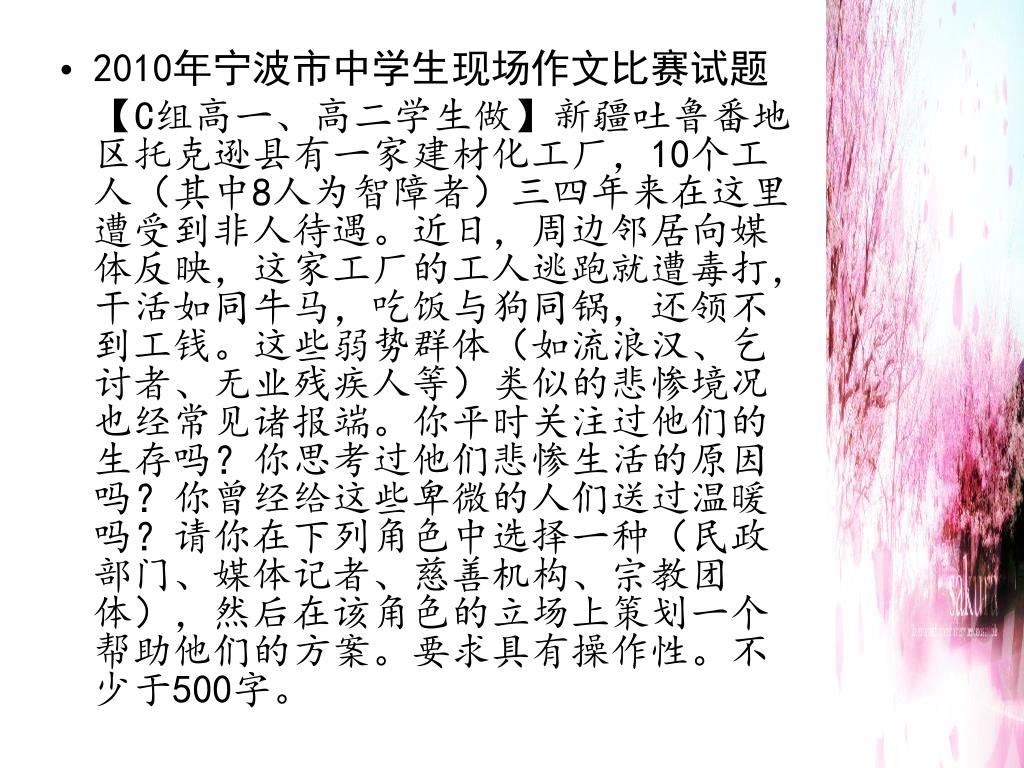 • 2010年宁波市中学生现场作文比赛试题
【C组高一、高二学生做】新疆吐鲁番地
区托克逊县有一家建材化工厂，10个工
人（其中8人为智障者）三四年来在这里
遭受到非人待遇。近日，周边邻居向媒
体反映，这家工厂的工人逃跑就遭毒打，
干活如同牛马，吃饭与狗同锅，还领不
到工钱。这些弱势群体（如流浪汉、乞
讨者、无业残疾人等）类似的悲惨境况
也经常见诸报端。你平时关注过他们的
生存吗？你思考过他们悲惨生活的原因
吗？你曾经给这些卑微的人们送过温暖
吗？请你在下列角色中选择一种（民政
部门、媒体记者、慈善机构、宗教团
体），然后在该角色的立场上策划一个
帮助他们的方案。要求具有操作性。不
少于500字。
sakura